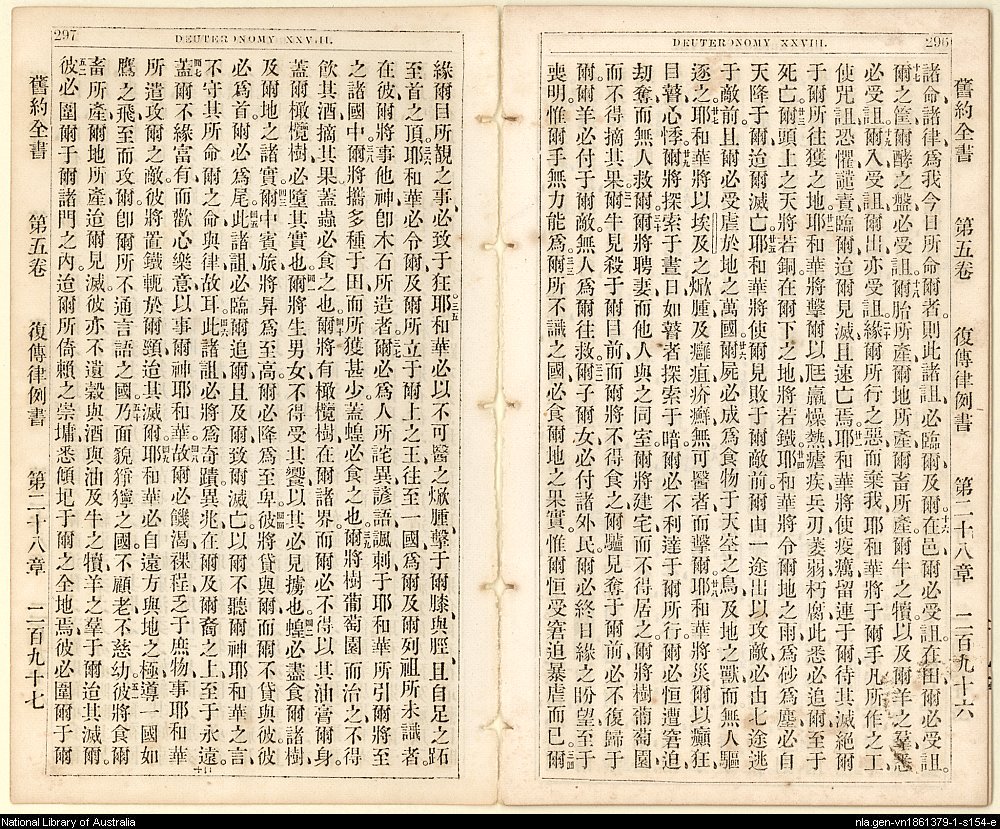 296
DEUTERONOMY XXVIII.
舊約全書　第五卷　復傳律例書　第二十八章　二百九十六
諸命諸律爲我今日所命爾者則此諸詛必臨爾及爾。在邑爾必受詛。在田爾必受詛。
爾之筐爾酵之盤必受詛。爾胎所產爾地所產爾畜所產爾牛之犢以及爾羊之羣悉
必受詛。爾入受詛爾出亦受詛。緣爾所行之惡而棄我耶和華將于爾手凡所作之工
使咒詛恐懼譴責臨爾迨爾見滅且速亡焉。耶和華將使疫癘留連于爾待其滅絕爾
于爾所往獲之地。耶和華將擊爾以尫羸燥熱瘧疾兵刃萎弱朽腐此悉必追爾至于
死亡。爾頭上之天將若銅在爾下之地將若鐵。耶和華將令爾地之雨爲砂爲塵必自
天降于爾迨爾滅亡。耶和華將使爾見敗于爾敵前爾由一途出以攻敵必由七途逃
于敵前且爾必受虐於地之萬國。爾屍必成爲食物于天空之鳥及地之獸而無人驅
逐之。耶和華將以埃及之焮腫及癰疽疥癬無可醫者而擊爾。耶和華將災爾以癲狂
目瞽心悸。爾將探索于晝日如瞽者探索于暗爾必不利達于爾所行爾必恒遭窘迫
劫奪而無人救爾。爾將聘妻而他人與之同室爾將建宅而不得居之爾將樹葡萄園
而不得摘其果。爾牛見殺于爾目前而爾將不得食之爾驢見奪于爾前必不復歸于
爾爾羊必付于爾敵無人爲爾往救。爾子爾女必付諸外民爾必終日緣之盼望至于
喪明惟爾手無力能爲。爾所不識之國必食爾地之果實惟爾恒受窘迫暴虐而已。爾
297
DEUTERONOMY XXVIII.
緣爾目所覩之事必致于狂。耶和華必以不可醫之焮腫擊于爾膝與脛且自足之跖
至首之頂。耶和華必令爾及爾所立于爾上之王往至一國爲爾及爾列祖所未識者
在彼爾將事他神卽木石所造者。爾必爲人所詫異諺語諷刺于耶和華所引爾將至
之諸國中。爾將攜多種于田而所獲甚少蓋蝗必食之也。爾將樹葡萄園而治之不得
飲其酒摘其果蓋蟲必食之也。爾將有橄欖樹在爾諸界而爾必不得以其油膏爾身
蓋爾橄欖樹必墮其實也。爾將生男女不得受其饗以其必見擄也。蝗必盡食爾諸樹
及爾地之諸實。爾中賓旅將昇爲至高爾必降爲至卑。彼將貸與爾而爾不貸與彼彼
必爲首爾必爲尾。此諸詛必臨爾追爾且及爾致爾滅亡以爾不聽爾神耶和華之言
不守其所命爾之命與律故耳。此諸詛必將爲奇蹟異兆在爾及爾裔之上至于永遠
蓋爾不緣富有而歡心樂意以事爾神耶和華。故爾必饑渴裸裎乏于庶物事耶和華
所遣攻爾之敵彼將置鐵軛於爾頸迨其滅爾。耶和華必自遠方與地之極導一國如
鷹之飛至而攻爾卽爾所不通言語之國。乃面貌猙獰之國不顧老不慈幼。彼將食爾
畜所產爾地所產迨爾見滅彼亦不遺穀與酒與油及牛之犢羊之羣于爾迨其滅爾。
彼必圍爾于爾諸門之內迨爾所倚賴之崇墉悉傾圮于爾之全地焉彼必圍爾于爾
舊約全書　第五卷　復傳律例書　第二十八章　二百九十七
National Library of Australia
nla.gen-vn1861379-1-s154-e